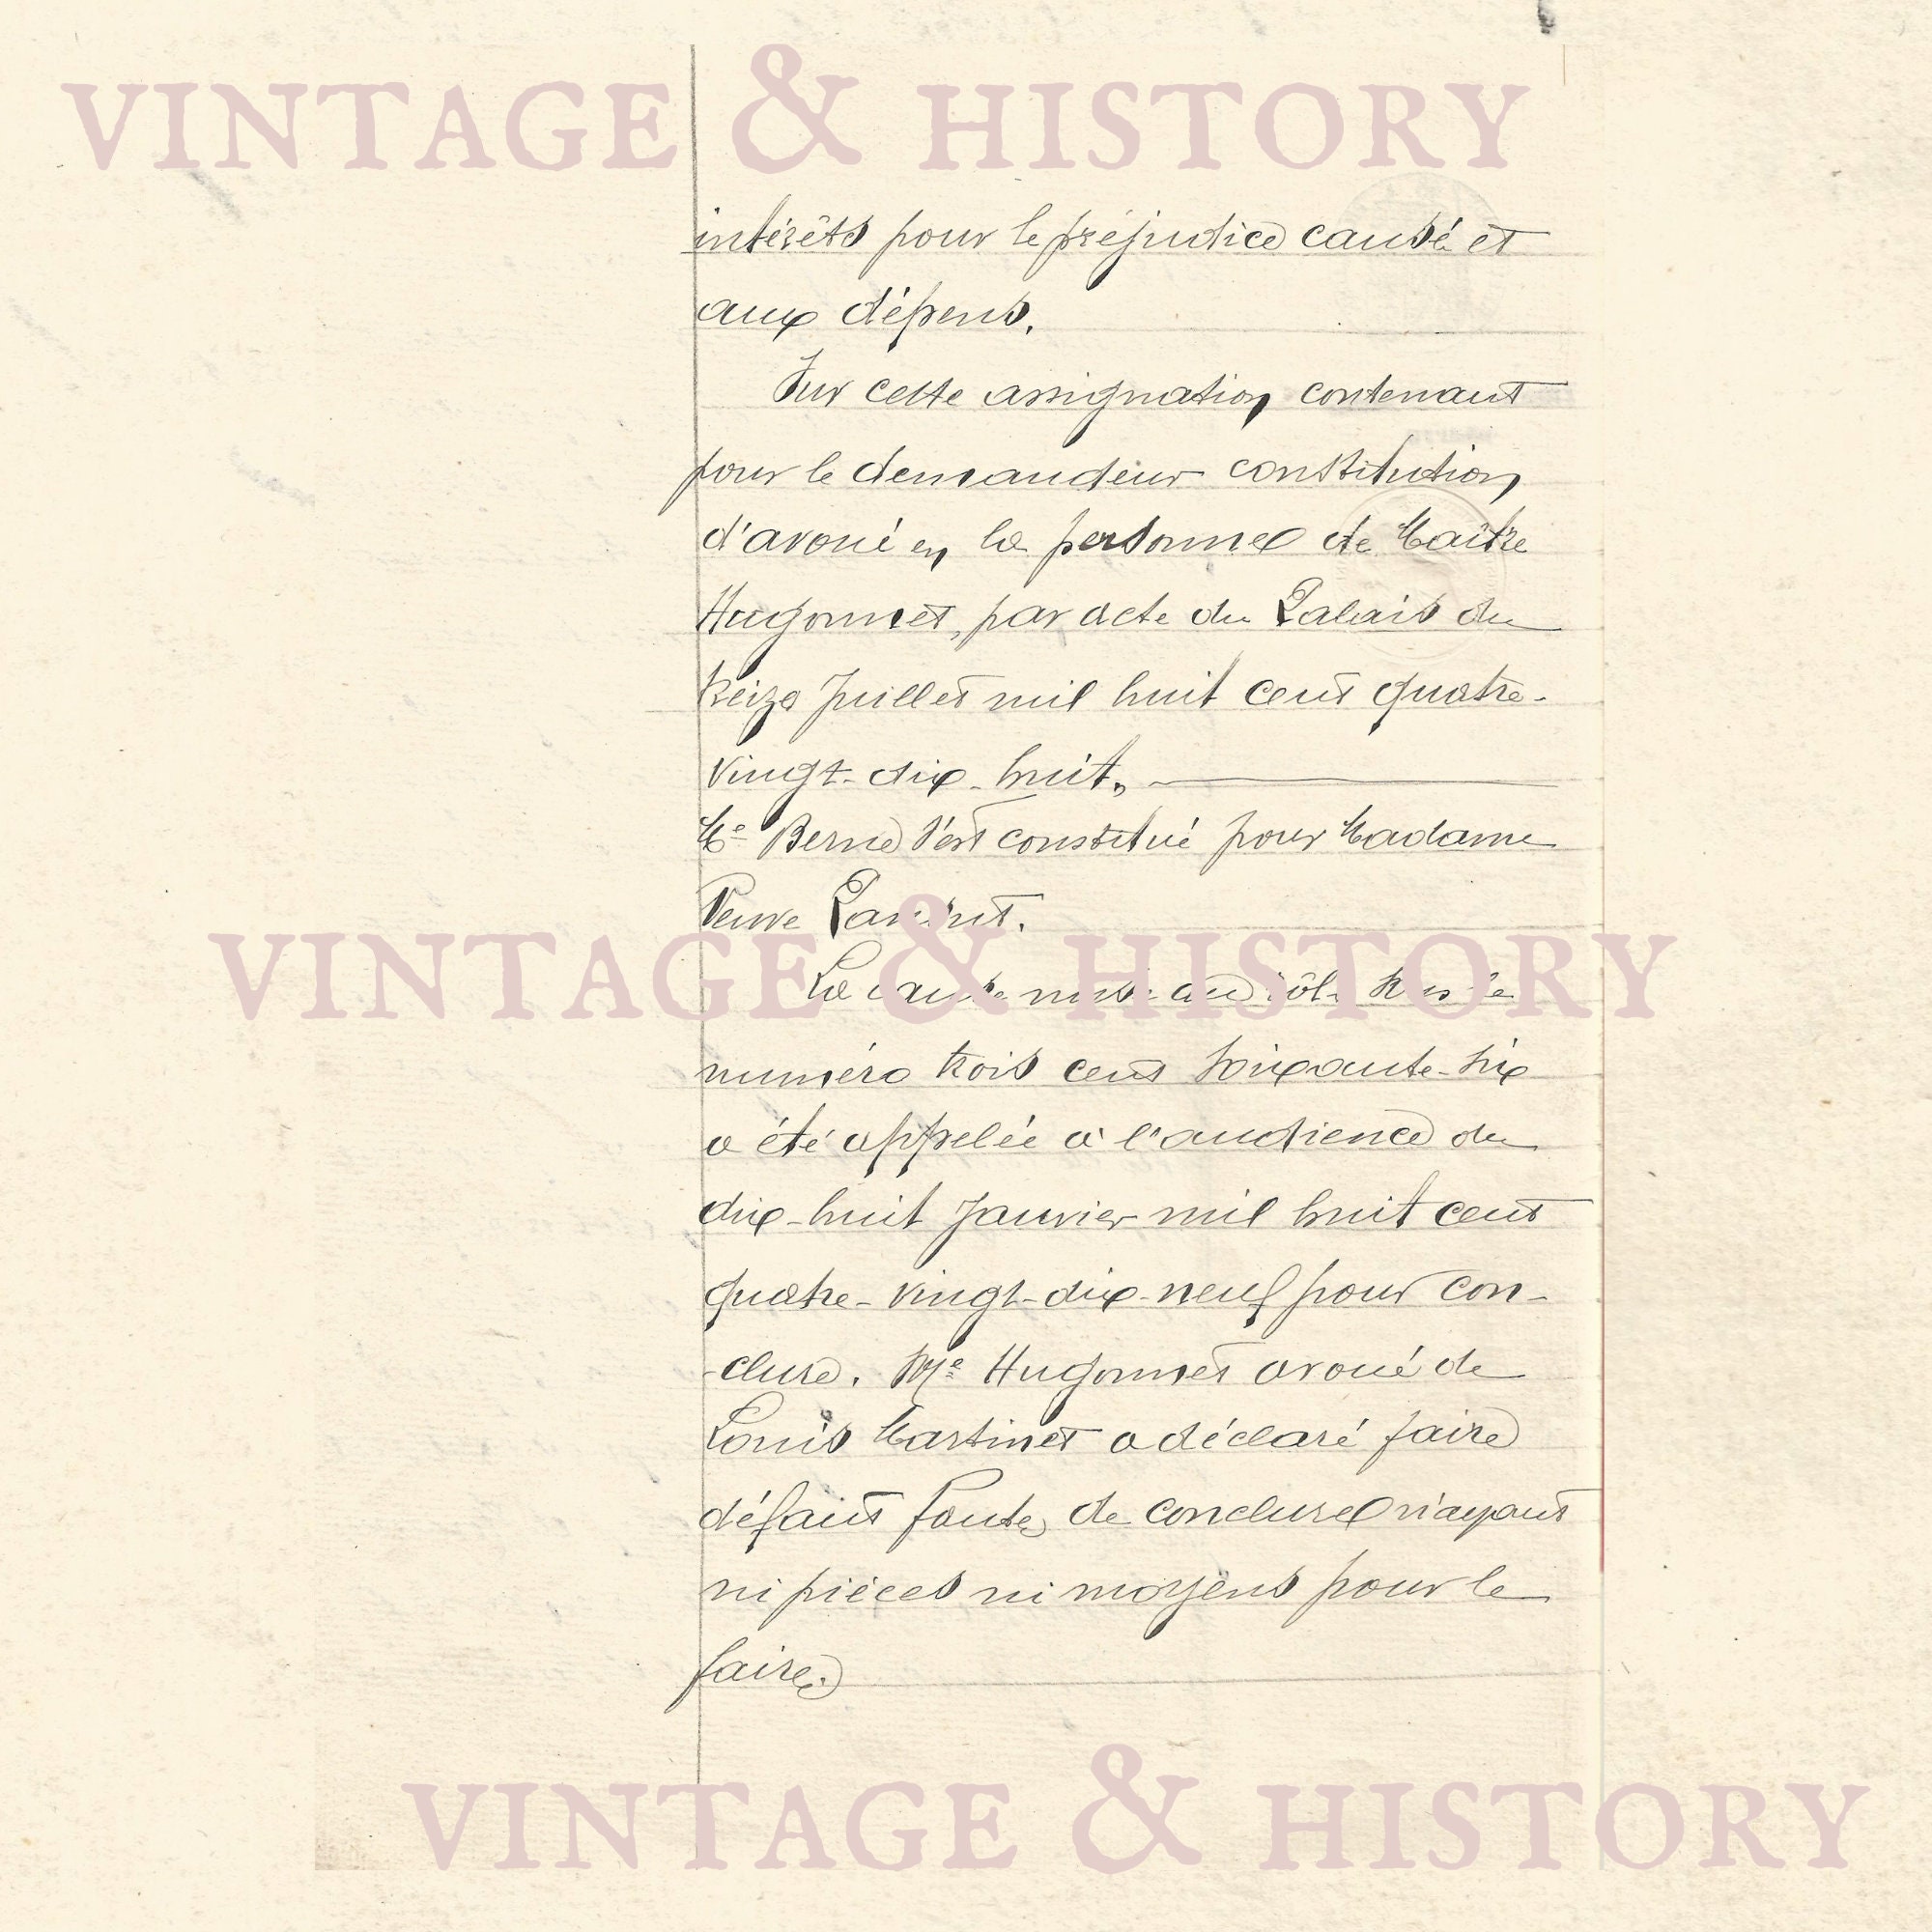 VINTAGE & HISTORY
intérêts pour le préjudice causé et
aux dépens.
Sur cette assignation contenant
pour le demandeur constitution
d'avoué en la personne de Maître
Hugonnet, par acte du Palais du
treize Juillet mil huit cent quatre-
vingt-dix-huit, 
Me Berne s'est constitué pour Madame
Veuve
VINTAGE & HISTORY
La cause mise au rôle sous le
numéro trois cent soixante-six
a été appelée à l'audience du
dix-huit Janvier mil huit cent
quatre-vingt-dix-neuf pour con-
-clure. Me Hugonnet avoué de
Louis Martinet a déclaré faire
défaut faute de conclure n'ayant
ni pièces ni moyens pour le
faire.
VINTAGE & HISTORY